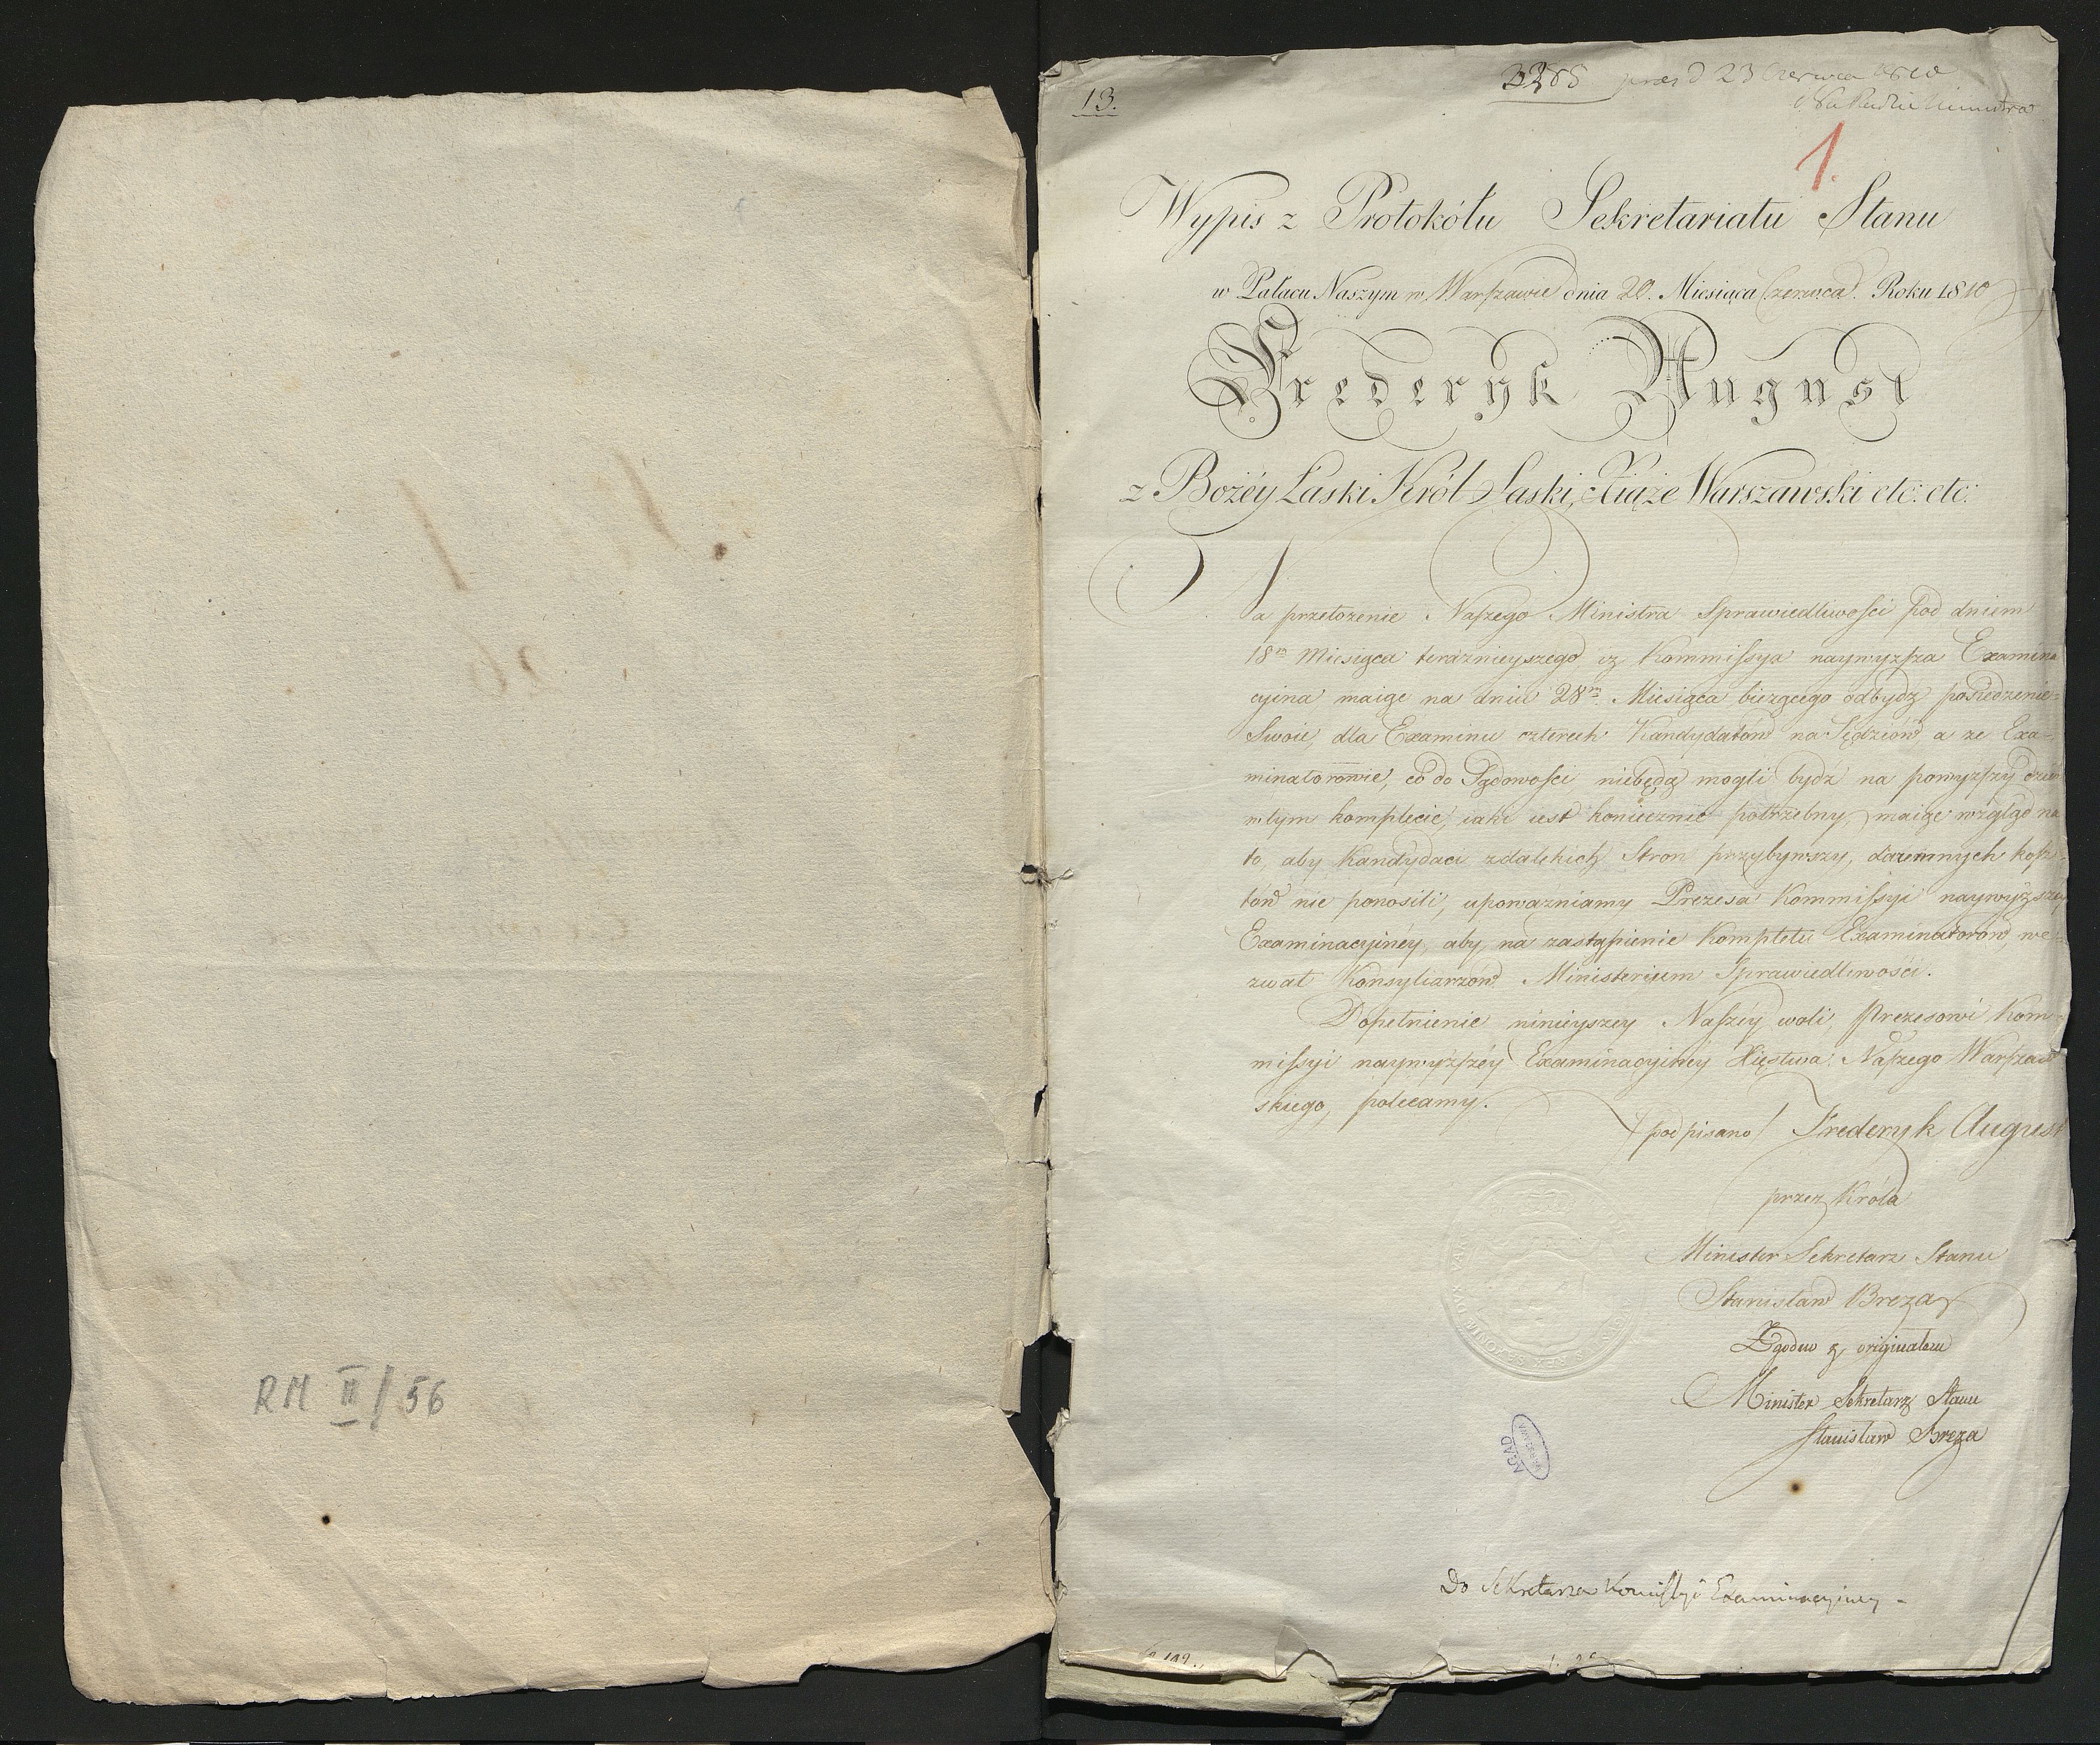 RM II/56
13.
3385 praes d 23 Czerwca 1810
1.
Wypis z Protokółu Sekretariatu Stanu
w Pałacu Naszym w Warſzawie dnia 20. Miesiąca Czerwca. Roku 1810
Fryderyk August
z Bożéy Łaski Król Saski, Xiąże Warszawski etc: etc:
Na przełożenie Naſzego Ministra Sprawiedliwoſci pod dniem
18m Miesiąca teraznieyszego, iz Kommiſsya naywyzſza Examina
cyina maiąc na dniu 28m Miesiąca biezącego odbydz posiedzenie
Swoie, dla Examinu czterech Kandydatów na Sędziów, a ze Exa-
minatorowie, co do Sądowoſci niebędą mogli bydź na powyzſzy dzień
w tym komplecie, iaki iest koniecznie potrzebny, maiąc wzgląd na
to, aby Kandydaci z dalekich Stron przybywszy, daremnych koſz-
tów nie ponosili, upoważniamy Prezesa Kommiſsyi naywyższey
Examinacyinéy, aby na zastąpienie Kompletu Examinatorów we-
zwał Konsyliarzów Ministerium Sprawiedliwości.
Dopełnienie ninieyszey Naſzéy woli, Prezesowi Kom-
miſsyi naywyżſzéy Examinacyinéy Xięstwa Naſzego Warſzaw
skiego, polecamy.
/podpisano/ Fryderyk August
przez Króla
Minister Sekretarz Stanu
Stanisław Breza
Zgodno z originałem
Minister Sekretarz Stanu
Stanisław Breza
AGAD
Do Sekretarza Komiſsyi Examinacyiney -